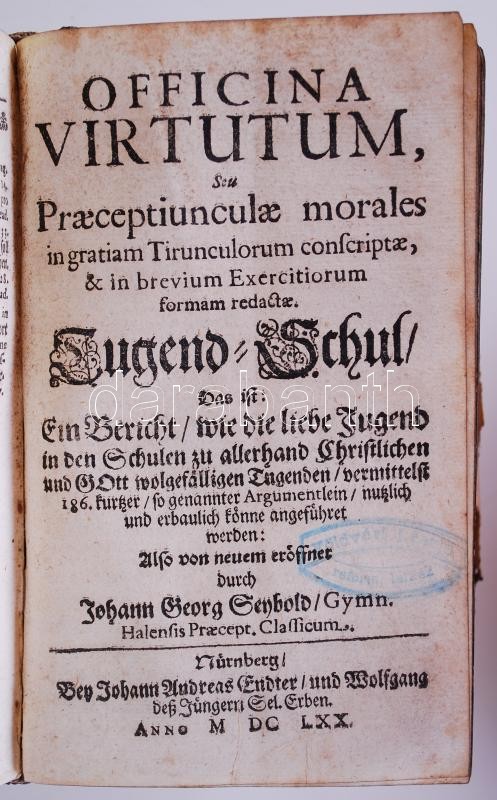 OFFICINA
VIRTUTUM,
Seu
Præceptiunculæ morales
in gratiam Tirunculorum conſcriptæ,
& in brevium Exercitiorum
formam redactæ.
Tugend-Schul/
Das iſt:
Ein Bericht/ wie die liebe Jugend
in den Schulen zu allerhand Chriſtlichen
und GOtt wolgefälligen Tugenden/ vermittelſt
186. kurtzer/ ſo genannter Argumentlein/ nutzlich
und erbaulich könne angeführet
werden:
Alſo von neuem eröffnet
durch
Johann Georg Seybold/ Gymn.
Halenſis Præcept. Claſſicum.
Nürnberg/
Bey Johann Andreas Endter/ und Wolfgang
deß Jüngern Sel. Erben.
ANNO M DC LXX.
darabanth